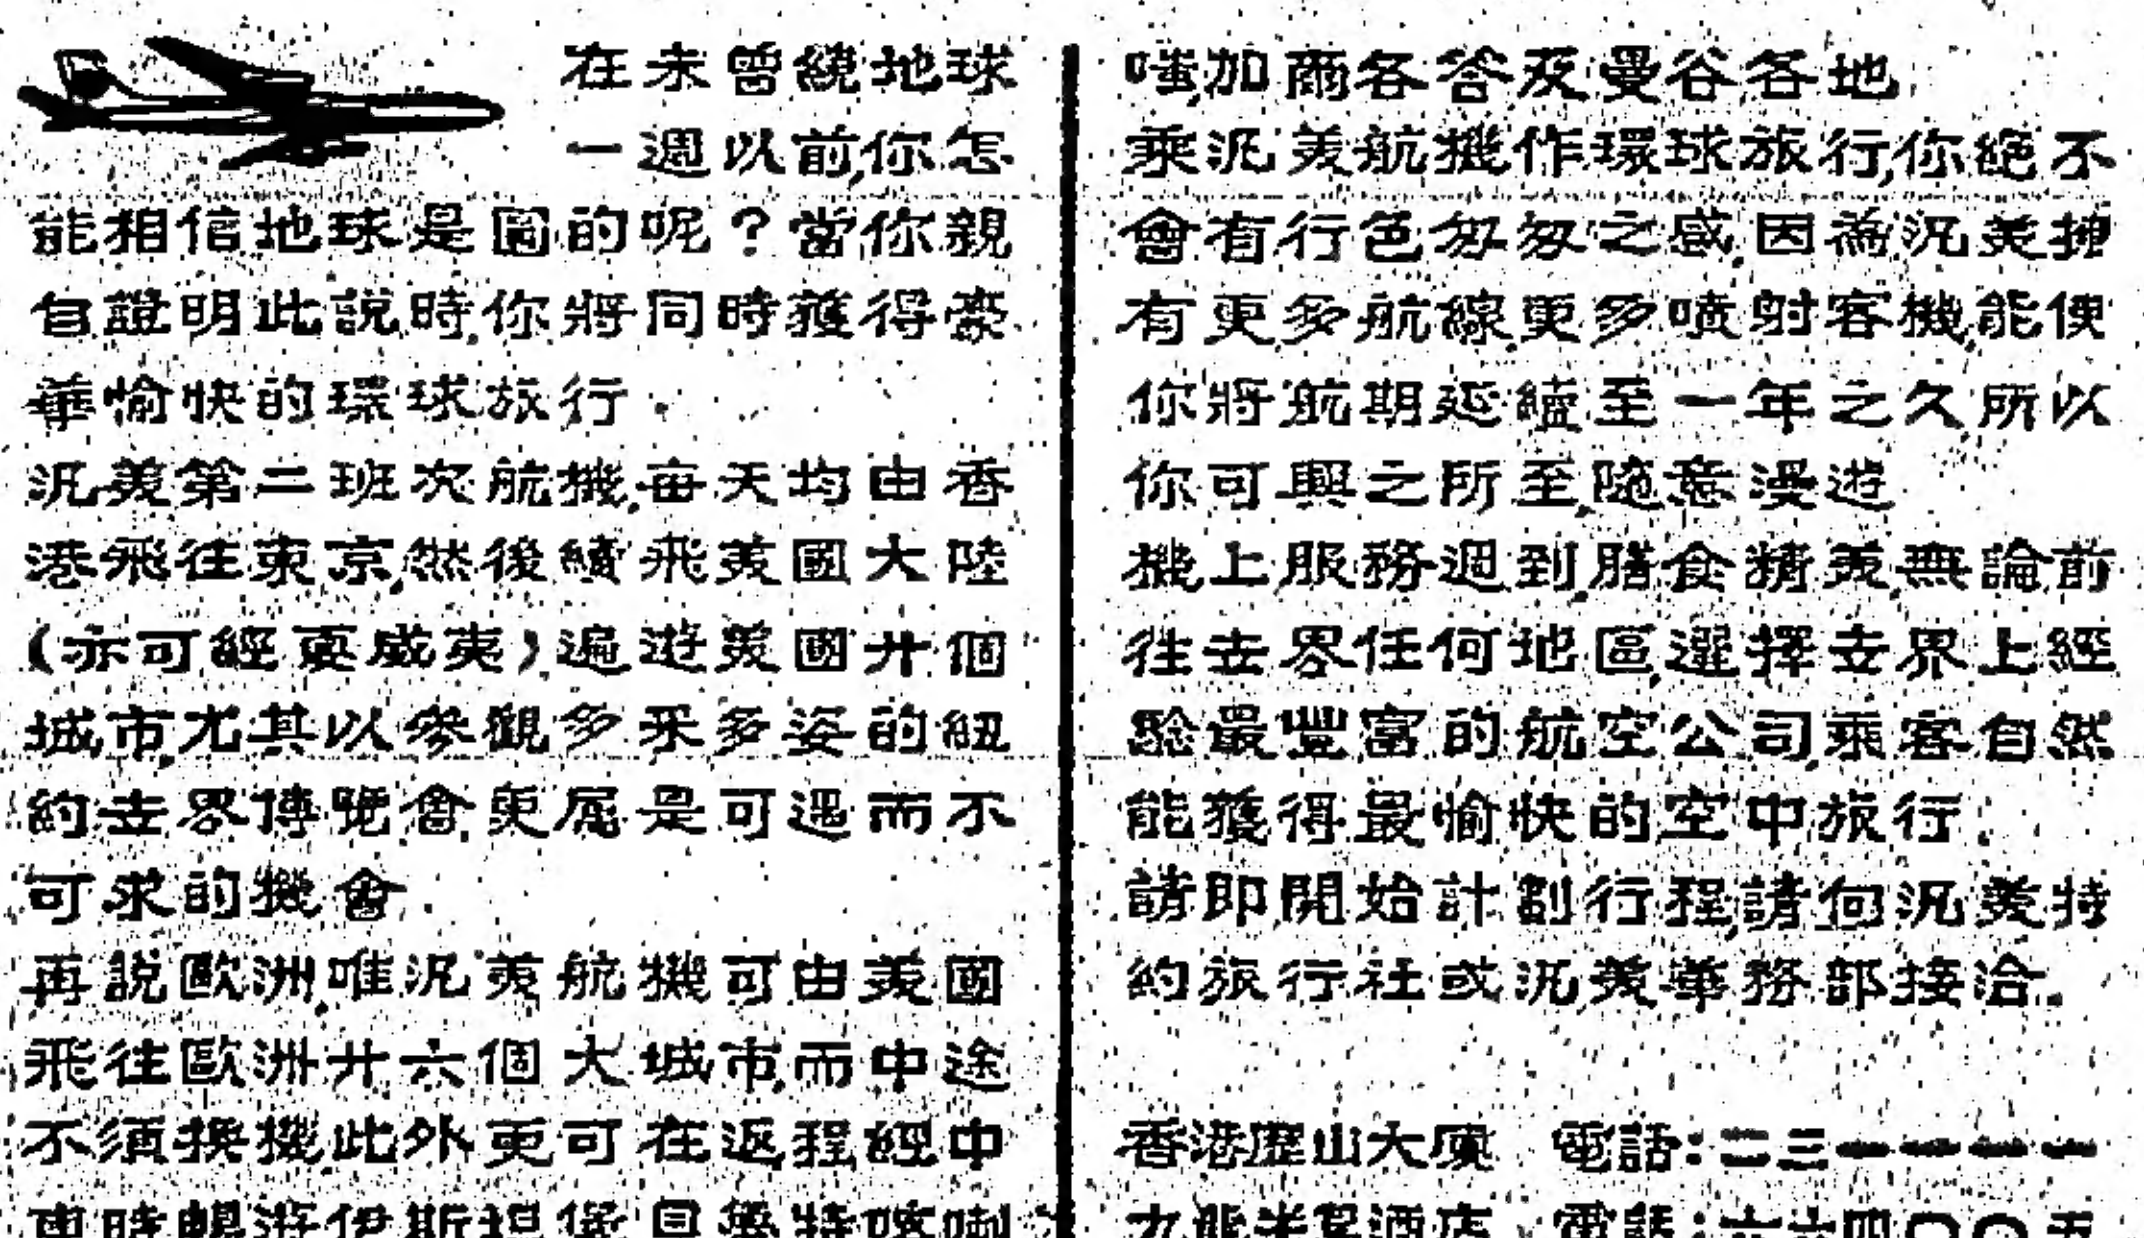 在未曾繞地球
一週以前,你怎
能相信地球是圓的呢?當你親
自證明此說時,你將同時獲得豪
華愉快的環球旅行.
汎美第二班次航機,每天均由香
港飛往東京,然後續飛美國大陸
(亦可經夏威夷),遍遊美國廿個
城市,尤其以參觀多采多姿的紐
約世界博覽會,更屬是可遇而不
可求的機會.
再說歐洲,唯汎美航機可由美國
飛往歐洲廿六個大城市,而中途
不須換機,此外更可在返程經中
東時暢遊伊斯坦堡,貝魯特,喀喇
嗤,加爾各答及曼谷各地.
乘汎美航機作環球旅行,你絕不
會有行色匆匆之感,因為汎美擁
有更多航線,更多噴射客機,能使
你將航期延續至一年之久,所以
你可興之所至,隨意漫遊.
機上服務週到,膳食精美,無論前
往世界任何地區,選擇世界上經
驗最豐富的航空公司,乘客自然
能獲得最愉快的空中旅行.
請即開始計劃行程,請向汎美特
約旅行社或汎美華務部接洽.
香港歷山大廈 電話:二三一一一一
九龍半島酒店 電話:六六四〇〇五